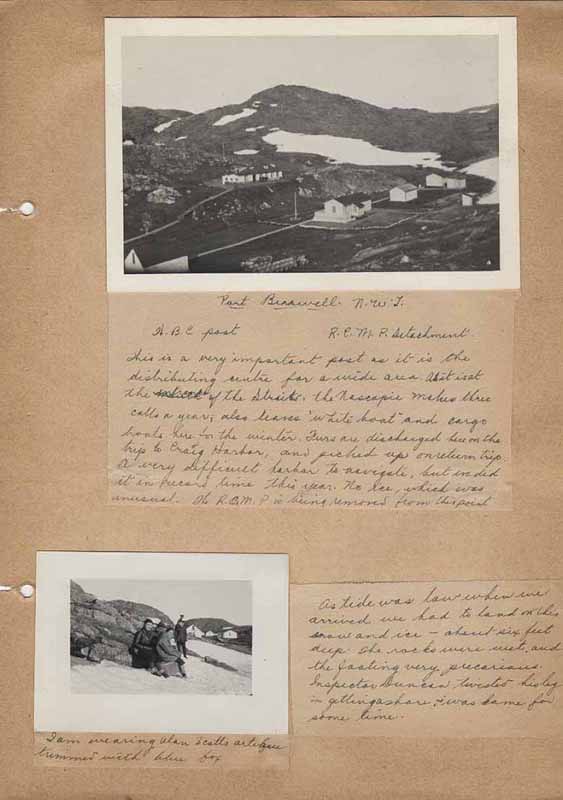 Port Burwell. N.W.T.
H.B.C post R.C.M.P. Detachment.
This is a very important post as it is the
distributing centre for a wide area. As it is at
the of the Straits, the Nascopie makes three
calls a year; also leaves "white boat" and cargo
boats here for the winter. Furs are discharged here on the
trip to Craig Harbor, and picked up on return trip
A very difficult harbor to navigate, but we did
it in record time this year. No Ice, which was
unusual. The R.C.M.P is being removed from this post
As tide was low when we
arrived we had to land on this
snow and ice - about six feet
deep. The rocks were wet, and
the footing very precarious.
Inspector Duncan twisted his leg
in getting ashore, & was lame for
some time.
I am wearing Alan Scott's
trimmed with blue fox